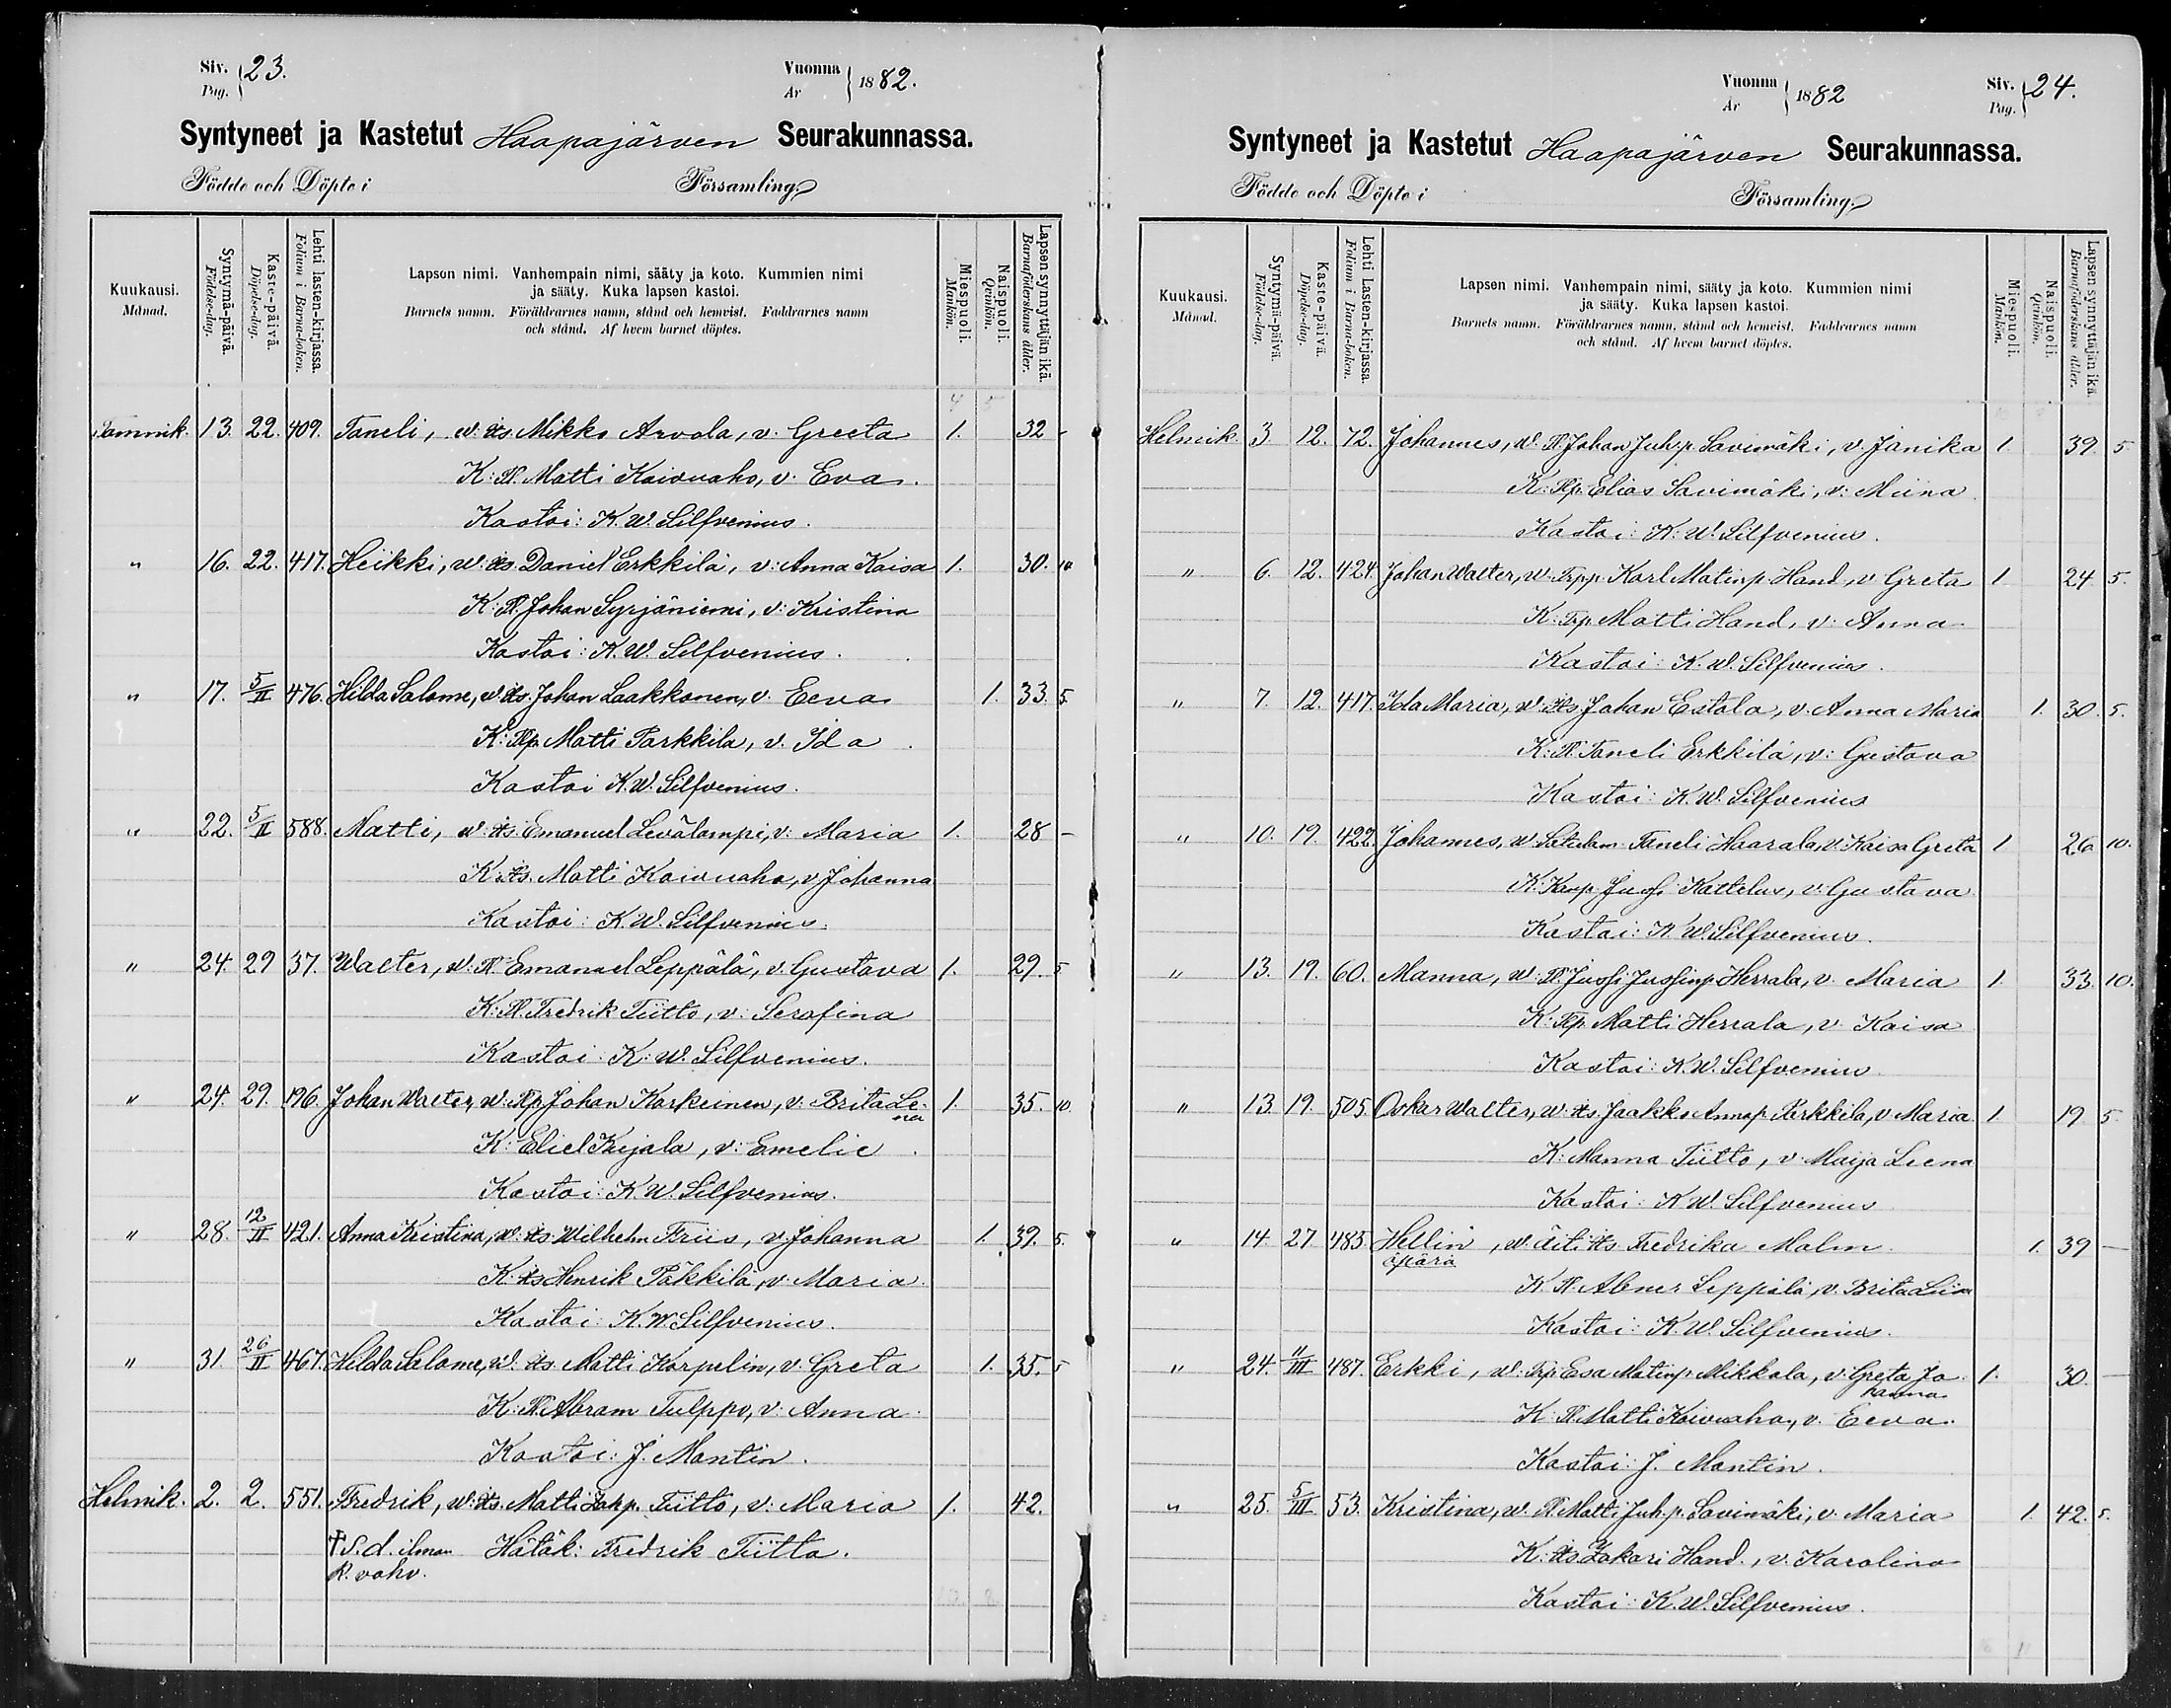 Siv. Pag. 23.
Vuonna År 1882.
Syntyneet ja Kastetut Haapajärven Seurakunnassa.
Födde och Döpte i Församling.
Kuukausi. Månad.
Syntymä-päivä. Födelse-dag.
Kaste-päivä. Döpelse-dag.
Lehti lasten-kirjassa. Folium i Barna-boken.
Lapson nimi. Vanhempain nimi, sääty ja koto. Kummien nimi
ja sääty. Kuka lapsen kastoi.
Barnets namn. Föräldrarnes namn, stånd och hemvist. Faddrarnes namn
och stånd. Af hvem barnet döptes.
Miespuoli. Mankön.
Naispuoli. Qvinkön.
Lapsen synnyttäjän ikä. Barnaföderskans ålder.
Tammik. 13. 22. 409. Taneli, w: Its Mikko Arvola, v: Greeta 1. 32 -
K: Tl. Matti Koivuaho, v: Eva.
Kastoi: K. W. Silfvenius.
" 16. 22. 417. Heikki, w: Its. Daniel Erkkilä, v: Anna Kaisa 1. 30. 10
K: Tl. Johan Syrjäniemi, v: Kristina
Kastoi: K. W. Silfvenius.
" 17. 5/II 476. Hilda Salome, w: Its. Johan Laakkonen, v: Eeva 1. 33. 5.
K: Tlp. Matti Parkkila, v. Ida
Kastoi K. W. Silfvenius.
" 22. 5/II 588. Matti, w: Its: Emanuel Levälampi, v: Maria 1. 28 -
K: Its. Matti Koivuaho, v Johanna
Kastoi: K. W. Silfvenius.
" 24. 29 37. Walter, w: Tl. Emanuel Leppälä, v. Gustava 1. 29. 5
K: Tl. Fredrik Tiitto, v: Serafina
Kastoi: K. W. Silfvenius.
" 24. 29. 196. Johan Walter, w: Tlp. Johan Karkeinen, v: Brita Le- 1. 35. 10
na
K: Eliel Kujala, v: Emelie
Kastoi: K. W. Silfvenius.
" 28. 12/II 421. Anna Kristina, w: Its. Wilhelm Friis, v: Johanna 1. 39. 5.
K: Its Henrik Päkkilä, v: Maria
Kastoi: K. W. Silfvenius.
" 31. 26/II 467. Hilda Salome, w: Its. Matti Karpelin, v: Greta 1. 35. 5
K: Tl. Abram Tulppo, v: Anna
Kastoi: J. Mantin.
Helmik. 2. 2. 551. Fredrik, w: Its. Matti Tiitto, v: Maria 1. 42.
† S. d. ilman Hätäk: Fredrik Tiitto.
K. vahv.
Vuonna År 1882
Siv. Pag. 24.
Syntyneet ja Kastetut Haapajärven Seurakunnassa.
Födde och Döpte i Församling.
Kuukausi. Månad.
Syntymä-päivä. Födelse-dag.
Kaste-päivä. Döpelse-dag.
Lehti Lasten-kirjassa. Folium i Barna-boken.
Lapsen nimi. Vanhempain nimi, sääty ja koto. Kummien nimi
ja sääty. Kuka lapsen kastoi.
Barnets namn. Föräldrarnes namn, stånd och hemvist. Faddrarnes namn
och stånd. Af hvem barnet döptes.
Miespuoli. Mankön.
Naispuoli. Qvinkön.
Lapsen synnyttäjän ikä. Barnaföderskans ålder.
Helmik 3 12. 72. Johannes, w: Tl. Johan Juh:p. Savimäki, v. Janika 1. 39. 5.
K: Tlp. Elias Savimäki, v: Miina
Kastoi: K. W. Silfvenius.
" 6. 12. 424. Johan Walter, w: Trpp. Karl Matinp. Hand, v. Greta 1 24 5.
K: Trp. Matti Hand, v: Anna
Kastoi: K. W. Silfvenius.
" 7. 12. 417. Ida Maria, w: Its. Johan Eskola, v. Anna Maria 1. 30. 5.
K: Tl. Taneli Erkkilä, v: Gustava
Kastoi: K. W. Silfvenius
" 10. 19. 422. Johannes, w. Taneli Haarala, v. Kaisa Greta 1 26 10.
K: Jussi Kattelus, v: Gustava
Kastoi: K. W. Silfvenius.
" 13. 19. 60. Manna, w: Tl. Jussi Jussinp. Herrala, v: Maria 1. 33. 10.
K: Tlp. Matti Herrala, v: Kaisa
Kastoi: K. W. Silfvenius
" 13. 19. 505. Oskar Walter, w: Its. Jaakko Annap. Parkkila, v. Maria 1. 19 5.
K: Manna Tiitto, v: Maija Leena
Kastoi: K. W. Silfvenius
" 14. 27. 485. Hellin, w. äiti Its Fredrika Malm. 1. 39 —
äpärä
K. Tl. Abner Leppälä, v. Brita Liisa
Kastoi: K. W. Silfvenius.
" 24. 11/III 487. Erkki, w: Trp. Esa Matinp. Mikkola, v: Greta Jo- 1. 30. —
hanna
K: Tl. Matti Koivuaho, v. Eeva.
Kastoi: J. Mantin.
" 25. 5/III 53. Kristina, w: Tl. Matti Juh.p. Savimäki, v: Maria 1. 42. 5.
K: Its. Zakari Hand, v: Karolina
Kastoi: K. W. Silfvenius.